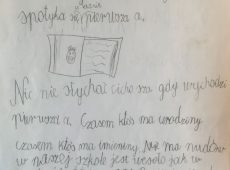 spotyka się pierwsza a.
Nic nie słychać cicho sza gdy wychodzi
pierwsza a. Czasem ktoś ma urodziny
czasem ktoś ma imieniny. Nie ma nudów
w naszej szkole jest wesoło jak w